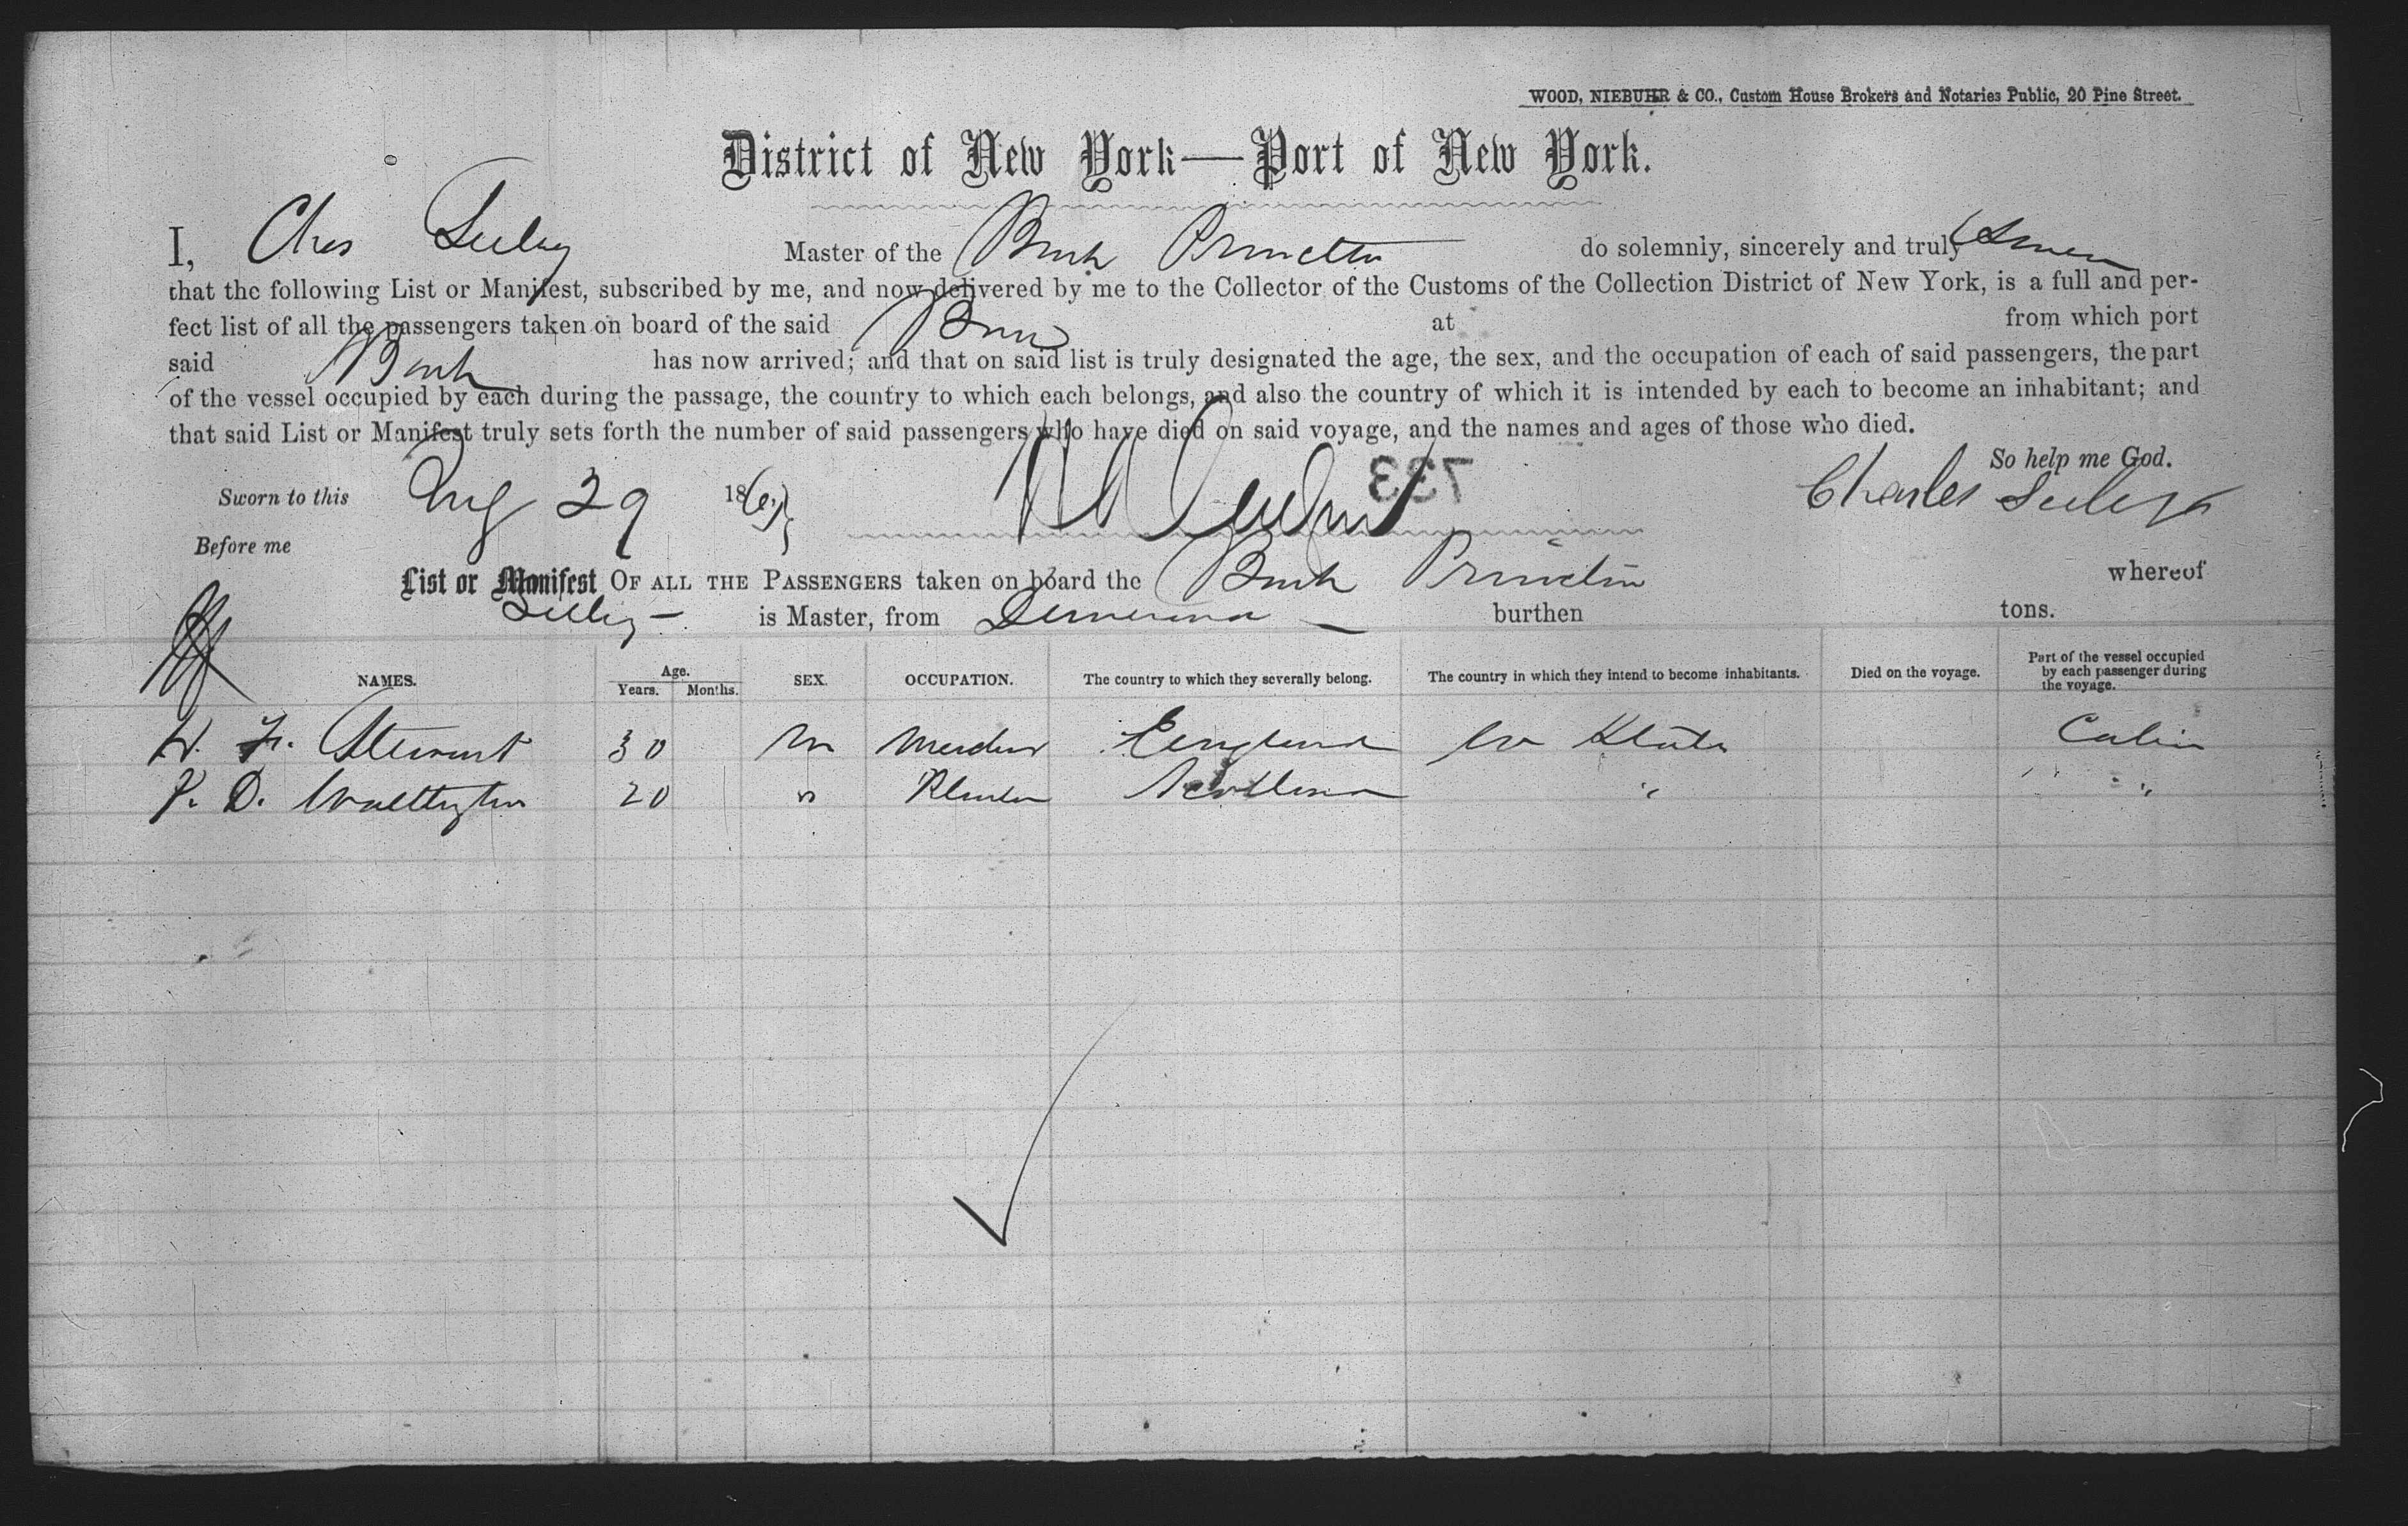 WOOD, NIEBUHR & CO., Custom House Brokers and Notaries Public, 20 Pine Street.
District of New York—Port of New York.
I, Chas Seeley Master of the Bark Princeton do solemnly, sincerely and truly Swear
that the following List or Manifest, subscribed by me, and now delivered by me to the Collector of the Customs of the Collection District of New York, is a full and per-
fect list of all the passengers taken on board of the said Bark at from which port
said Bark has now arrived; and that on said list is truly designated the age, the sex, and the occupation of each of said passengers, the part
of the vessel occupied by each during the passage, the country to which each belongs, and also the country of which it is intended by each to become an inhabitant; and
that said List or Manifest truly sets forth the number of said passengers who have died on said voyage, and the names and ages of those who died.
So help me God.
Sworn to this Aug 29 186 733 Charles Seeley
Before me
List or Manifest OF ALL THE PASSENGERS taken on board the Bark Princeton whereof
Seeley — is Master, from Demerara — burthen tons.
NAMES. Age. Years. Months. SEX. OCCUPATION. The country to which they severally belong. The country in which they intend to become inhabitants. Died on the voyage. Part of the vessel occupied by each passenger during the voyage.
W. F. Stewart 30 m England States Cabin
P. D. 20 " Planter Scotland " "